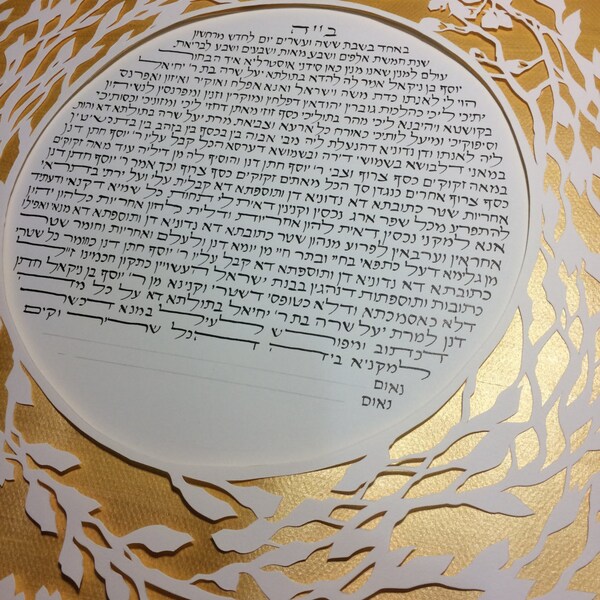 ב״ה
באחד בשבת ששה ועשרים יום לחדש מרחשון
שנת חמשת אלפים ושבע מאות ושבעים ושבע לבריאת
עולם למנין שאנו מנין כאן סידני אוסטרליא איך הבחור
יוסף בן ניקאל אמר לה להדא בתולתא יעל שרה בת ר׳ יחיאל
הוי לי לאנתו כדת משה וישראל ואנא אפלח ואוקיר ואיזון ואפרנס
יתיכי ליכי כהלכות גוברין יהודאין דפלחין ומוקרין וזנין ומפרנסין לנשיהון
בקושטא ויהיבנא ליכי מהר בתוליכי כסף זוזי מאתן דחזי ליכי ומזוניכי וכסותיכי
וסיפוקיכי ומיעל לותיכי כאורח כל ארעא וצביאת מרת יעל שרה בתולתא דא והות
ליה לאנתו ודן נדוניא דהנעלת ליה מבי אבוה בין בכסף בין בזהב בין בתכשיטין
במאני דלבושא בשמושי דירה ובשמושא דערסא הכל קבל עליו ר׳ יוסף חתן דנן
במאה זקוקים כסף צרוף וצבי ר׳ יוסף חתן דנן והוסיף לה מן דיליה עוד מאה זקוקים
כסף צרוף אחרים כנגדן סך הכל מאתים זקוקים כסף צרוף וכך אמר ר׳ יוסף חתן דנן
אחריות שטר כתובתא דא נדוניא דן ותוספתא דא קבלית עלי ועל ירתי בתראי
להתפרע מכל שפר ארג נכסין וקנינין דאית לי תחות כל שמיא דקנאי ודעתיד
אנא למקני נכסין דאית להון אחריות ודלית להון אחריות כלהון יהון
אחראין וערבאין לפרוע מנהון שטר כתובתא דא נדוניא דן ותוספתא דא מנאי ואפילו
מן גלימא דעל כתפאי בח״י ובתר חיי מן יומא דנן ולעולם ואחריות וחומר שטר
כתובתא דא נדוניא דן ותוספתא דא קבל עליו ר׳ יוסף חתן דנן כחומר כל שטרי
כתובות ותוספתות דנהגין בבנות ישראל העשויין כתקון חכמינו ז״ל
דלא כאסמכתא ודלא כטופסי דשטרי וקנינא מן ר׳ יוסף בן ניקאל חתן
דנן למרת יעל שרה בת ר׳ יחיאל בתולתא דא על כל מה
דכתוב ומפורש לעיל במנא דכשר
למקניא ביה הכל שריר וקים
נאום
נאום